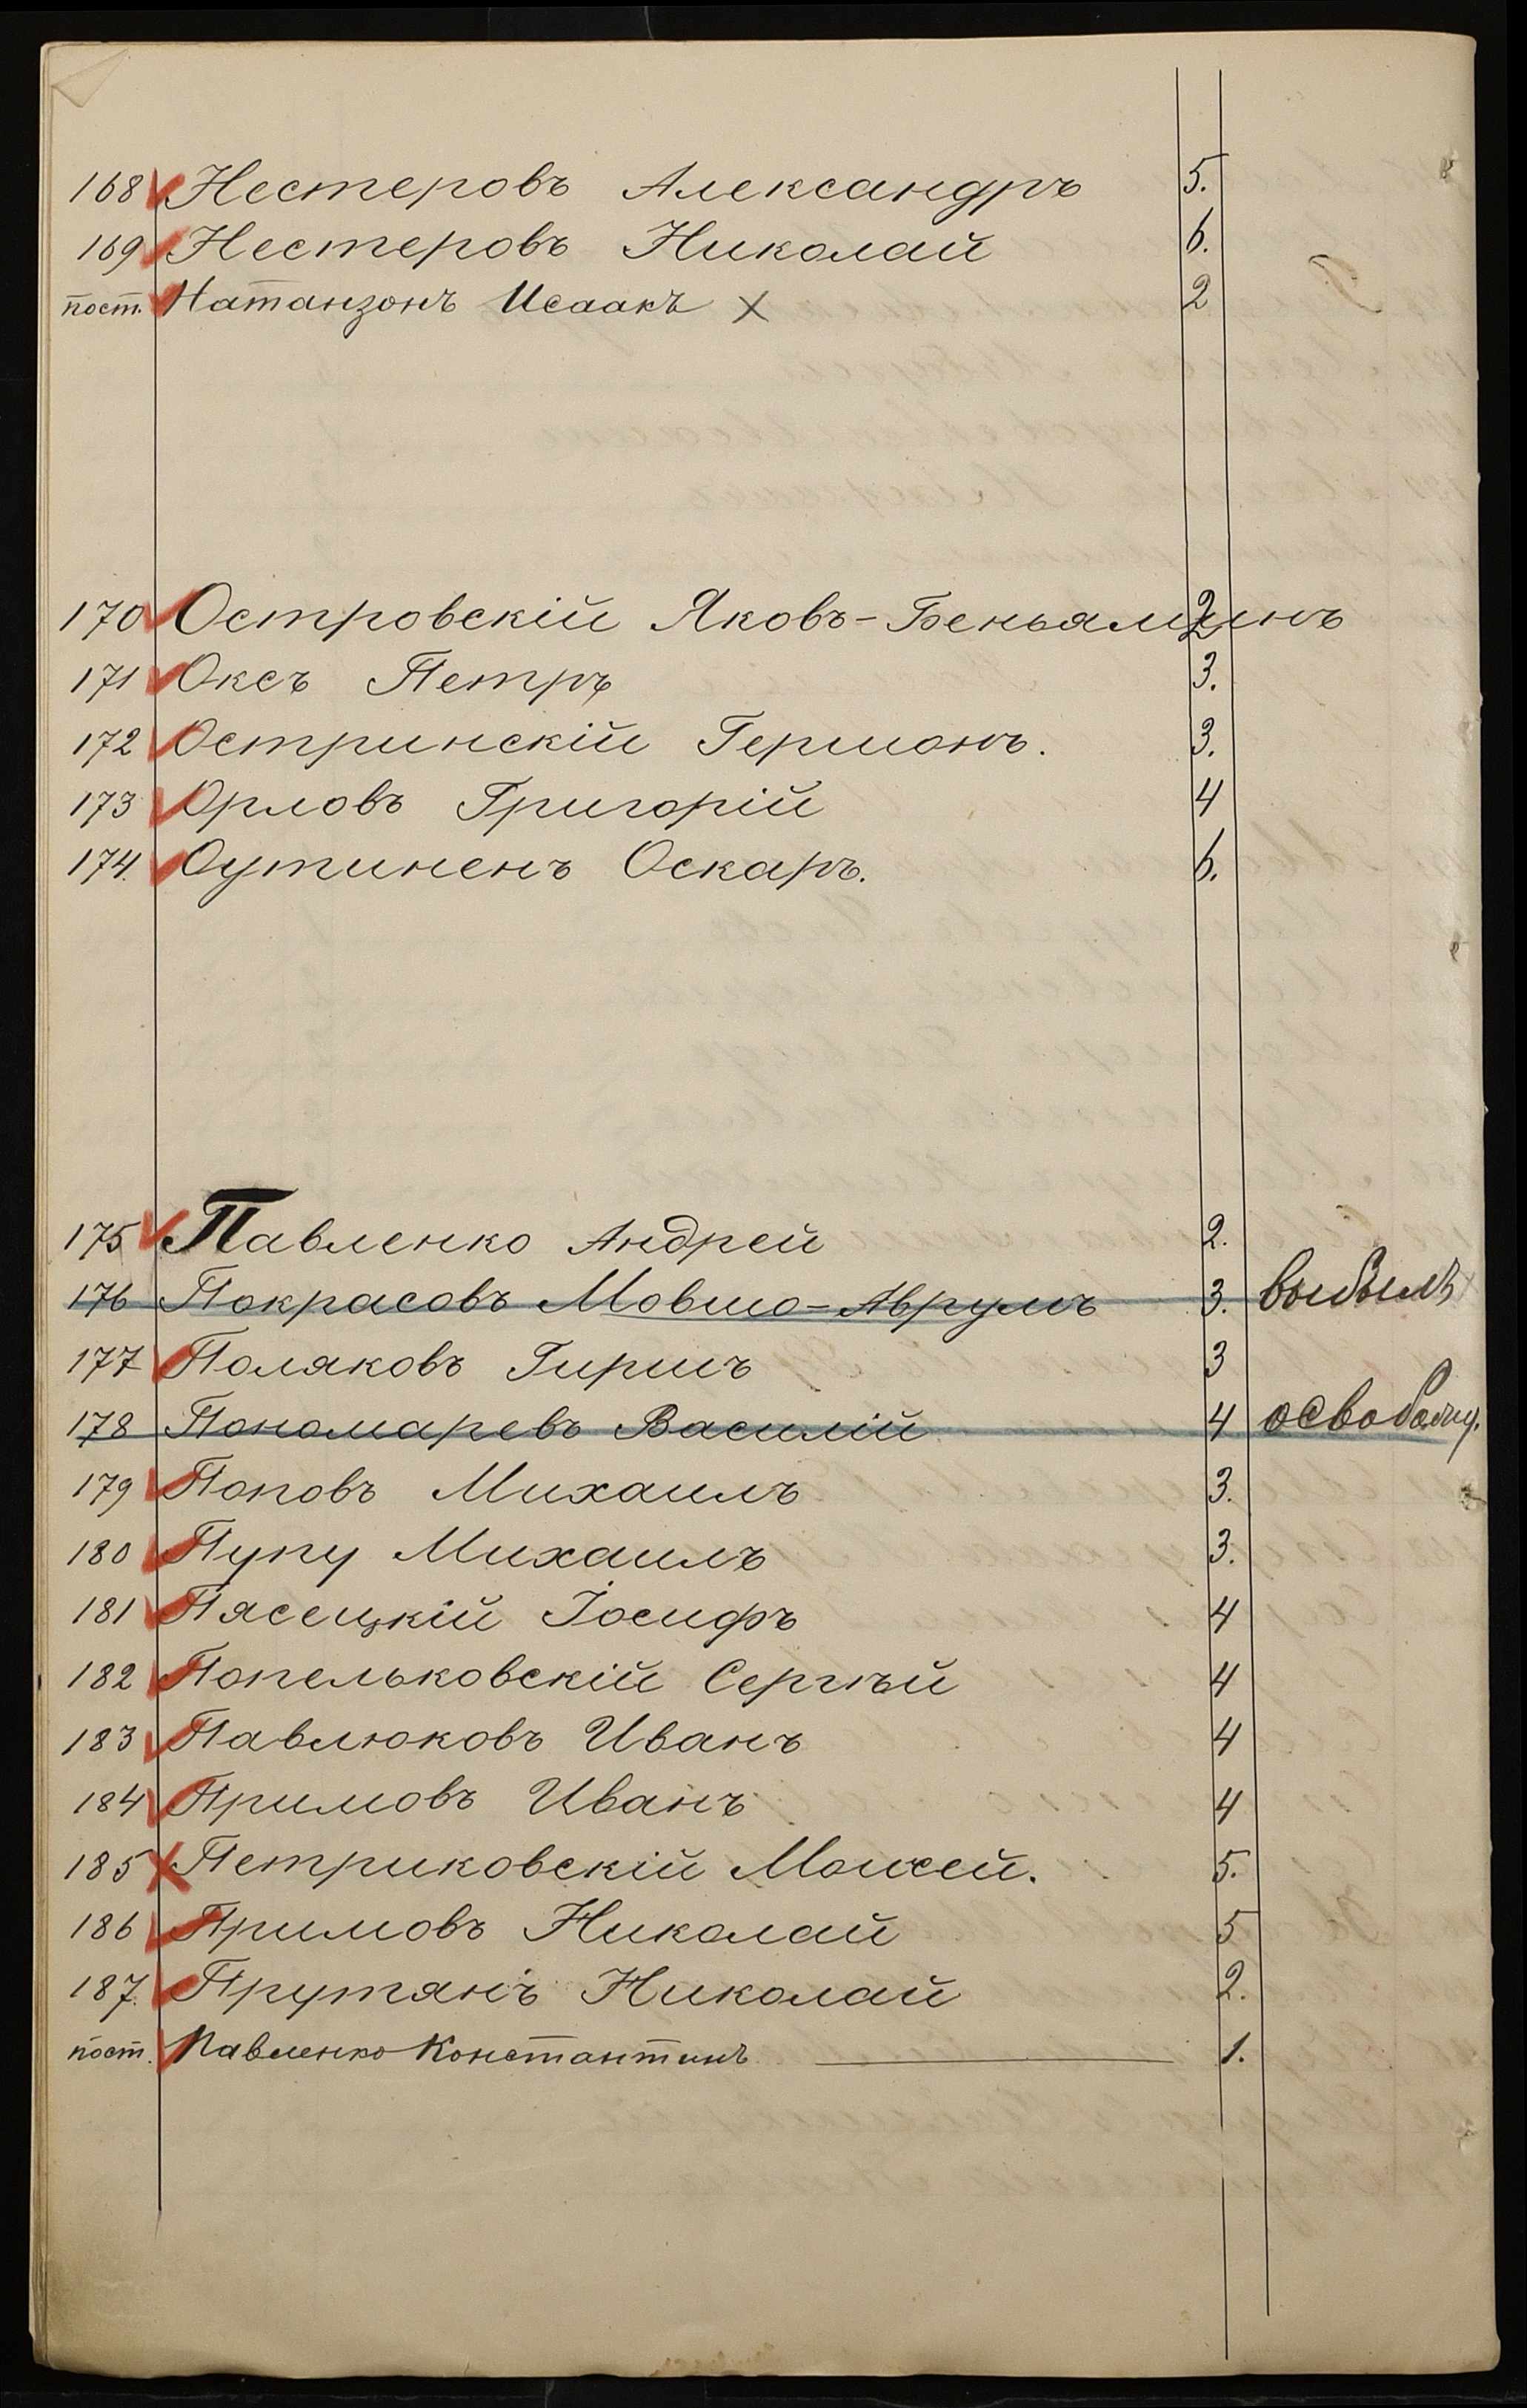 168 Нестеровъ Александръ 5.
169 Нестеровъ Николай 6.
пост. Натанзонъ Исаакъ × 2
170 Островскій Яковъ-Беньяминъ 2
171 Оксъ Петръ 3.
172 Остринскій Германъ. 3.
173 Орловъ Григорій 4
174. Оутиненъ Оскаръ. 6.
175 Павленко Андрей 2.
176 Покрасовъ Мовшо-Аврумъ 3. выбылъ
177 Поляковъ Гиршъ 3
178 Пономаревъ Василій 4 освобожд.
179 Поповъ Михаилъ 3.
180 Пупу Михаилъ 3.
181 Пясецкій Іосифъ 4
182 Попельковскій Сергѣй 4
183 Павлюковъ Иванъ 4
184 Примовъ Иванъ 4
185 Петриковскій Моисей. 5.
186 Примовъ Николай 5
187. Прутянъ Николай 2.
пост. Павленко Константинъ 1.